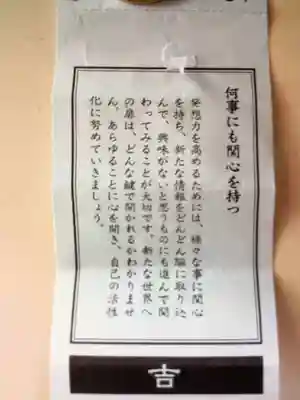 何事にも関心を持つ
発想力を高めるためには、様々な事に関心
を持ち、新たな情報をどんどん脳に取り込
んで、興味がないと思うものにも進んで関
わってみることが大切です。新たな世界へ
の扉は、どんな鍵で開かれるかわかりませ
ん。あらゆることに心を開き、自己の活性
化に努めていきましょう。
吉